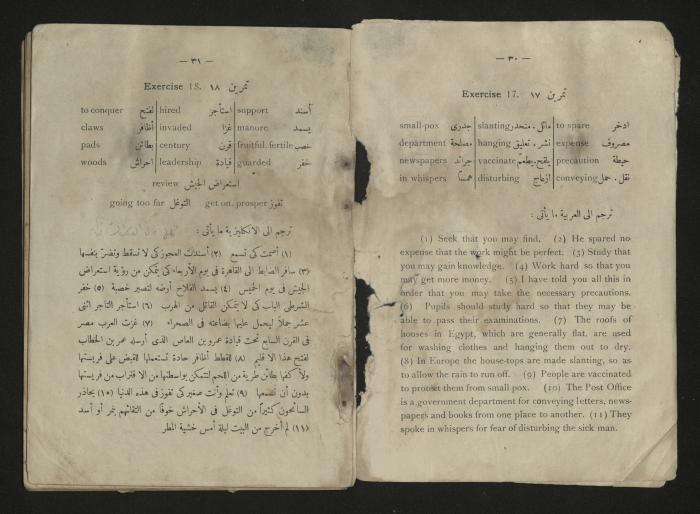 — ٣٠ —
Exercise 17. تمرين ١٧
small-pox جدرى slanting مائل. منحدر to spare ادخر
department مصلحة hanging نشر. تعليق expense مصروف
newspapers جرائد vaccinate يلقح. يطعم precaution حيطة
in whispers همسًا disturbing ازعاج conveying نقل. حمل
ترجم الى العربية ما يأتى :
(1) Seek that you may find. (2) He spared no
expense that the work might be perfect. (3) Study that
you may gain knowledge. (4) Work hard so that you
may get more money. (5) I have told you all this in
order that you may take the necessary precautions.
(6) Pupils should study hard so that they may be
able to pass their examinations. (7) The roofs of
houses in Egypt, which are generally flat, are used
for washing clothes and hanging them out to dry.
(8) In Europe the house-tops are made slanting, so as
to allow the rain to run off. (9) People are vaccinated
to protect them from small pox. (10) The Post Office
is a government department for conveying letters, news-
papers and books from one place to another. (11) They
spoke in whispers for fear of disturbing the sick man.
— ٣١ —
Exercise 18. تمرين ١٨
to conquer لفتح hired استأجر support أسند
claws أظافر invaded غزا manure يسمد
pads بطائن century قرن fruitful. fertile خصب
woods احراش leadership قيادة guarded خفر
review استعراض الجيش
going too far التوغل get on. prosper تفوز
ترجم الى الانكليزية ما يأتى :
(١) أصمت كى تسمع (٢) أسندت العجوز كى لا تسقط وتضر بنفسها
(٣) سافر الضابط الى القاهرة فى يوم الأربعاء كى يتمكن من رؤية استعراض
الجيش فى يوم الخميس (٤) يسمد الفلاح أرضه لتصير خصبة (٥) خفر
الشرطى الباب كى لا يتمكن القاتل من الهرب (٦) استأجر التاجر اثنى
عشر جملا ليحمل عليها بضاعته فى الصحراء (٧) غزت العرب مصر
فى القرن السابع تحت قيادة عمرو بن العاص الذى أرسله عمر بن الخطاب
لفتح هذا الاقليم (٨) للقطط أظافر حادة تستعملها للقبض على فريستها
ولأكفها بطائن طرية من اللحم لتتمكن بواسطتها من الاقتراب من فريستها
بدون أن تسمعها (٩) تعلم وأنت صغير كى تفوز فى هذه الدنيا (١٠) يحاذر
السائحون كثيرًا من التوغل فى الأحراش خوفًا من التقائهم بنمر أو أسد
(١١) لم أخرج من البيت ليلة أمس خشية المطر